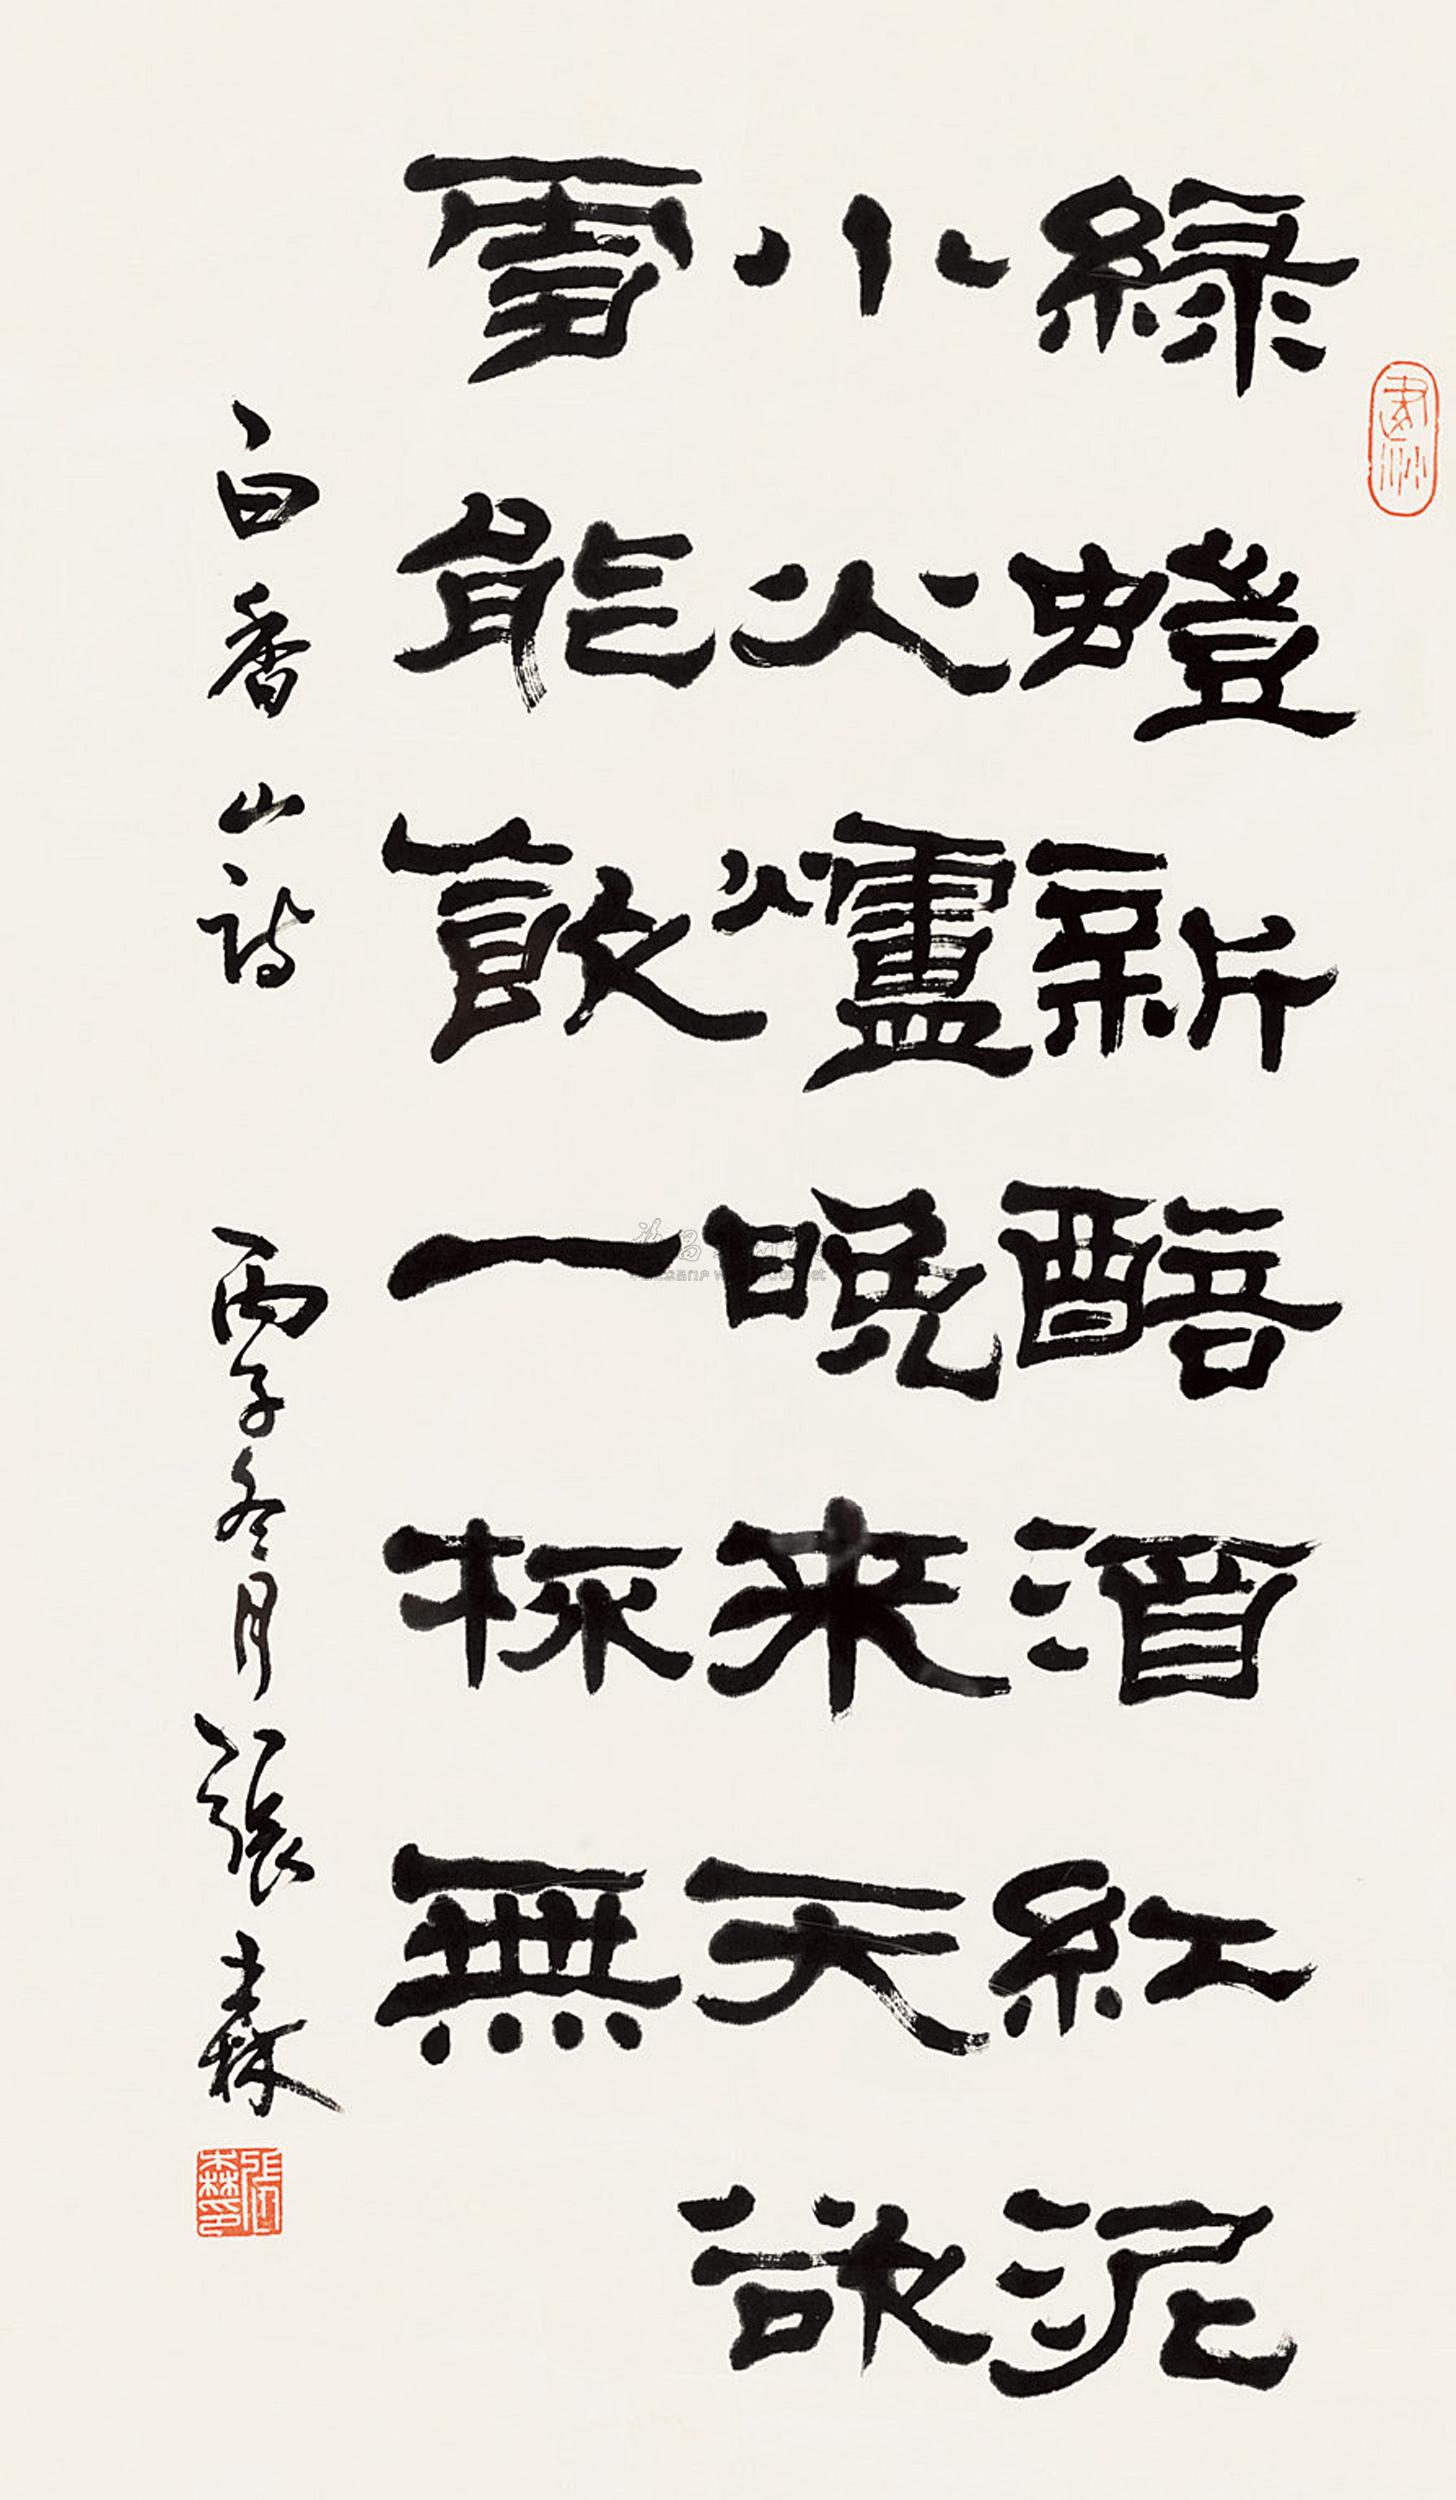 綠螘新醅酒紅泥
小火爐晚来天欲
雪能飲一杯無
白香山詩 丙子冬月張森
張森印